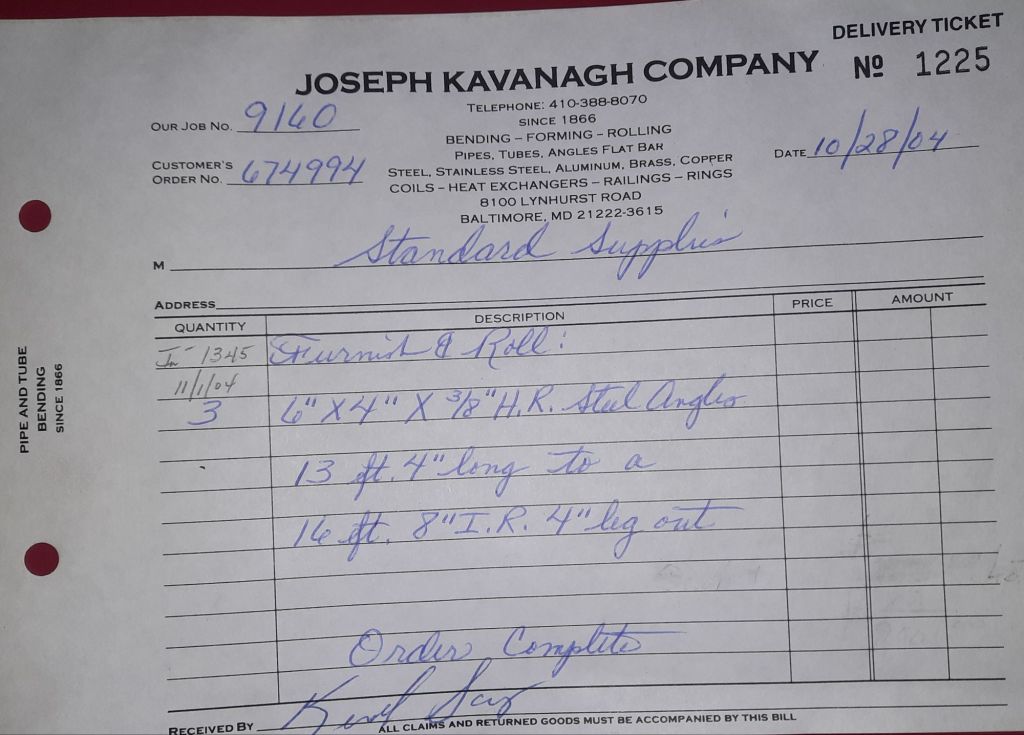 DELIVERY TICKET
Nº 1225
JOSEPH KAVANAGH COMPANY
TELEPHONE: 410-388-8070
SINCE 1866
BENDING – FORMING – ROLLING
PIPES, TUBES, ANGLES FLAT BAR
STEEL, STAINLESS STEEL, ALUMINUM, BRASS, COPPER
COILS – HEAT EXCHANGERS – RAILINGS – RINGS
8100 LYNHURST ROAD
BALTIMORE, MD 21222-3615
OUR JOB NO. 9160
CUSTOMER'S ORDER NO. 674994
DATE 10/28/04
M Standard Supplies
ADDRESS
QUANTITY DESCRIPTION PRICE AMOUNT
In- 1345 Furnish & Roll:
11/1/04
3 6" X 4" X 3/8" H.R. Steel Angles
13 ft. 4" long to a
16 ft. 8" I.R. 4" leg out
Order Complete
RECEIVED BY
ALL CLAIMS AND RETURNED GOODS MUST BE ACCOMPANIED BY THIS BILL
PIPE AND TUBE
BENDING
SINCE 1866